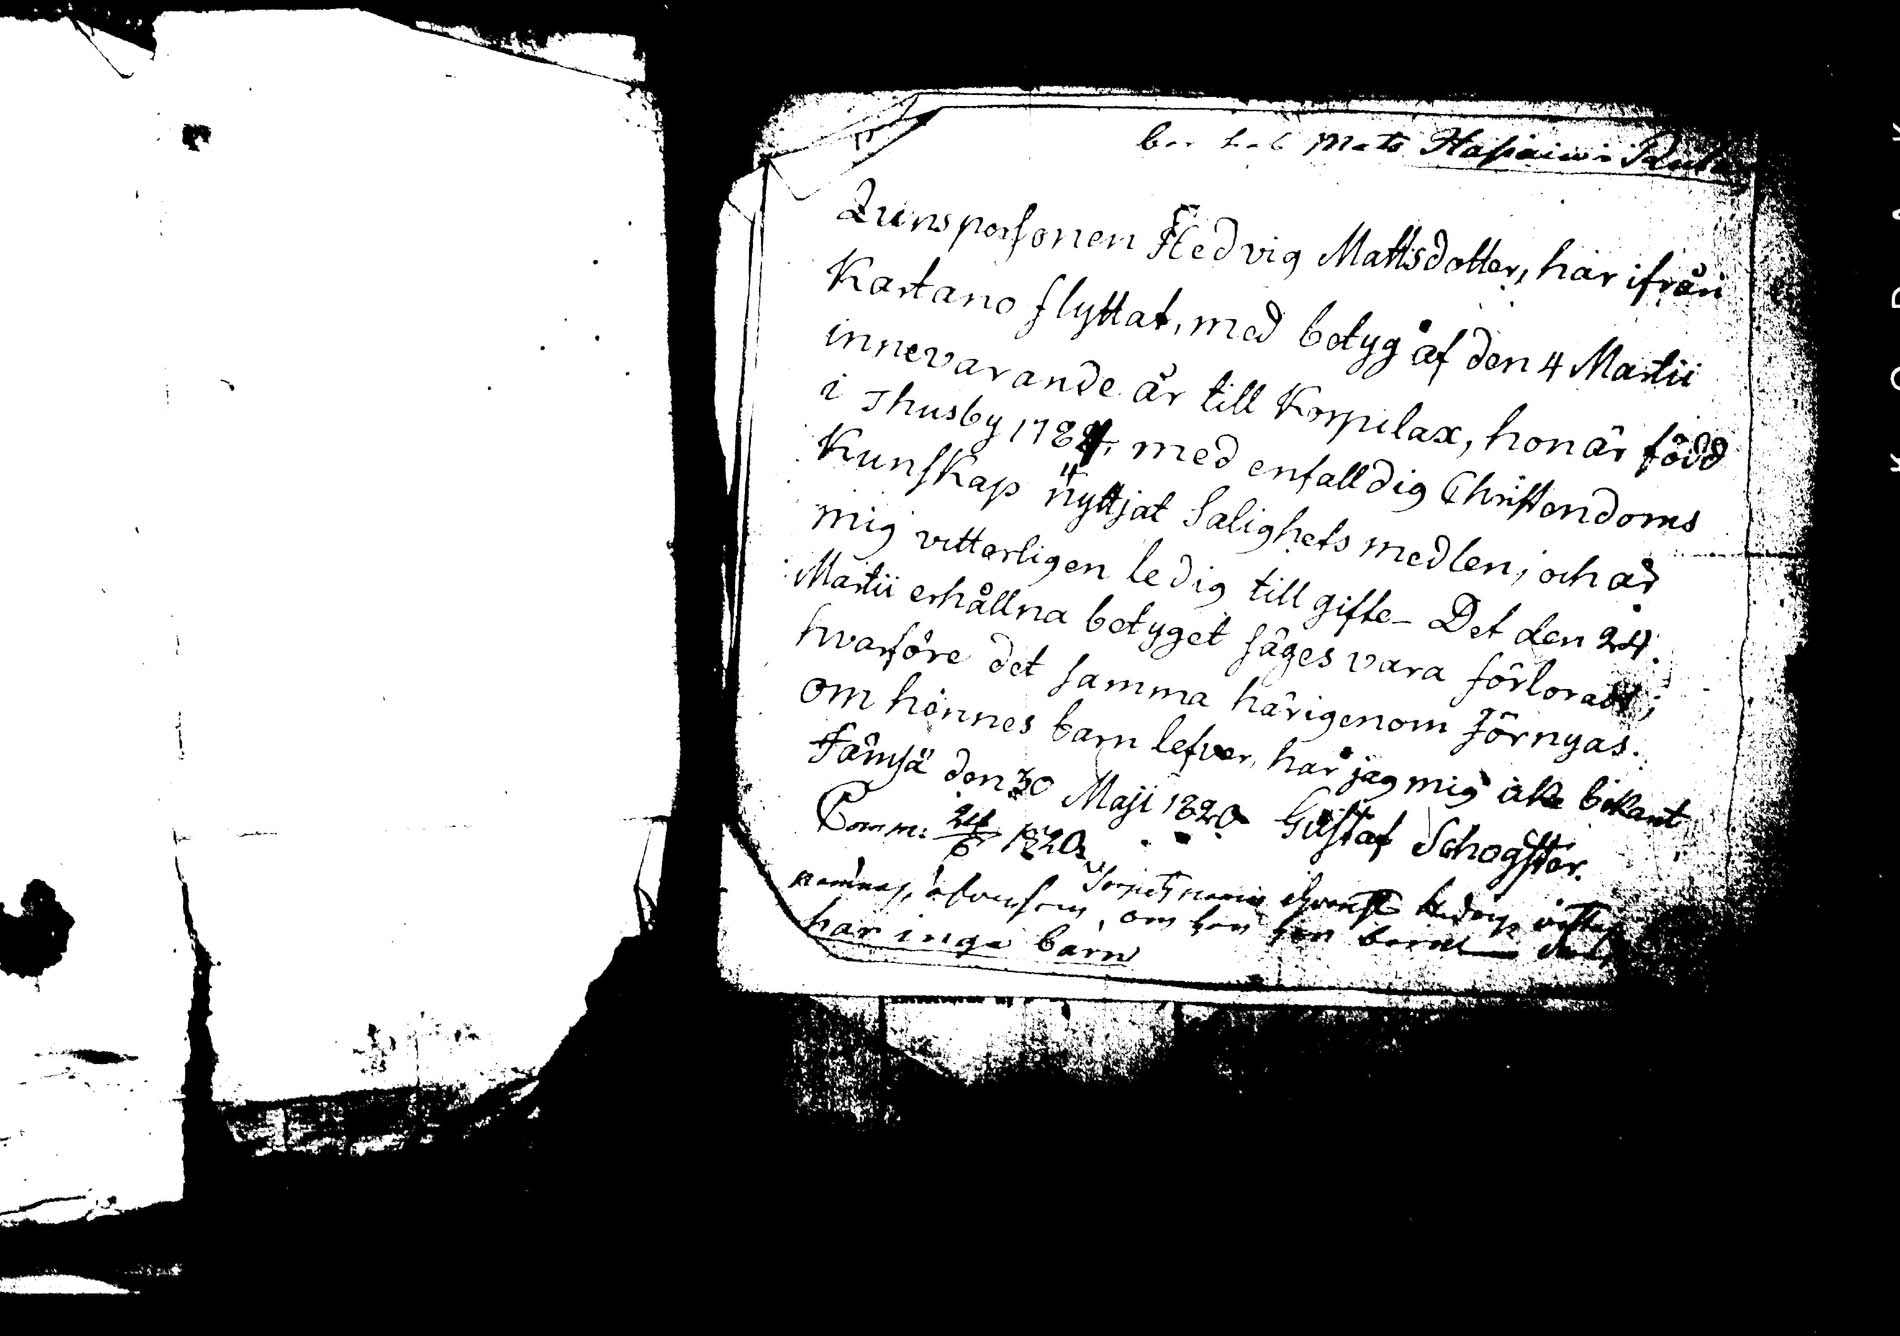 Mats
Qvinspersonen Hedvig Mattsdotter, har ifrån
Kartano flyttat, med betyg af den 4 Martii
innevarande år till Korpilax, hon är född
i Thusby 1784, med enfalldig Christendoms
Kunskap nyttjat Salighets medlen, och är
mig vitterligen ledig till gifte – Det den 24.
Martii erhållna betyget säges vara förloradt;
hvarföre det samma härigenom förnyas.
Om hennes barn lefver, har jag mig icke bekant
Jämsä den 30 Maji 1820 Gustaf Schogster.
Comm: 24/6 1820.
om hon
har inga barn
KODAK